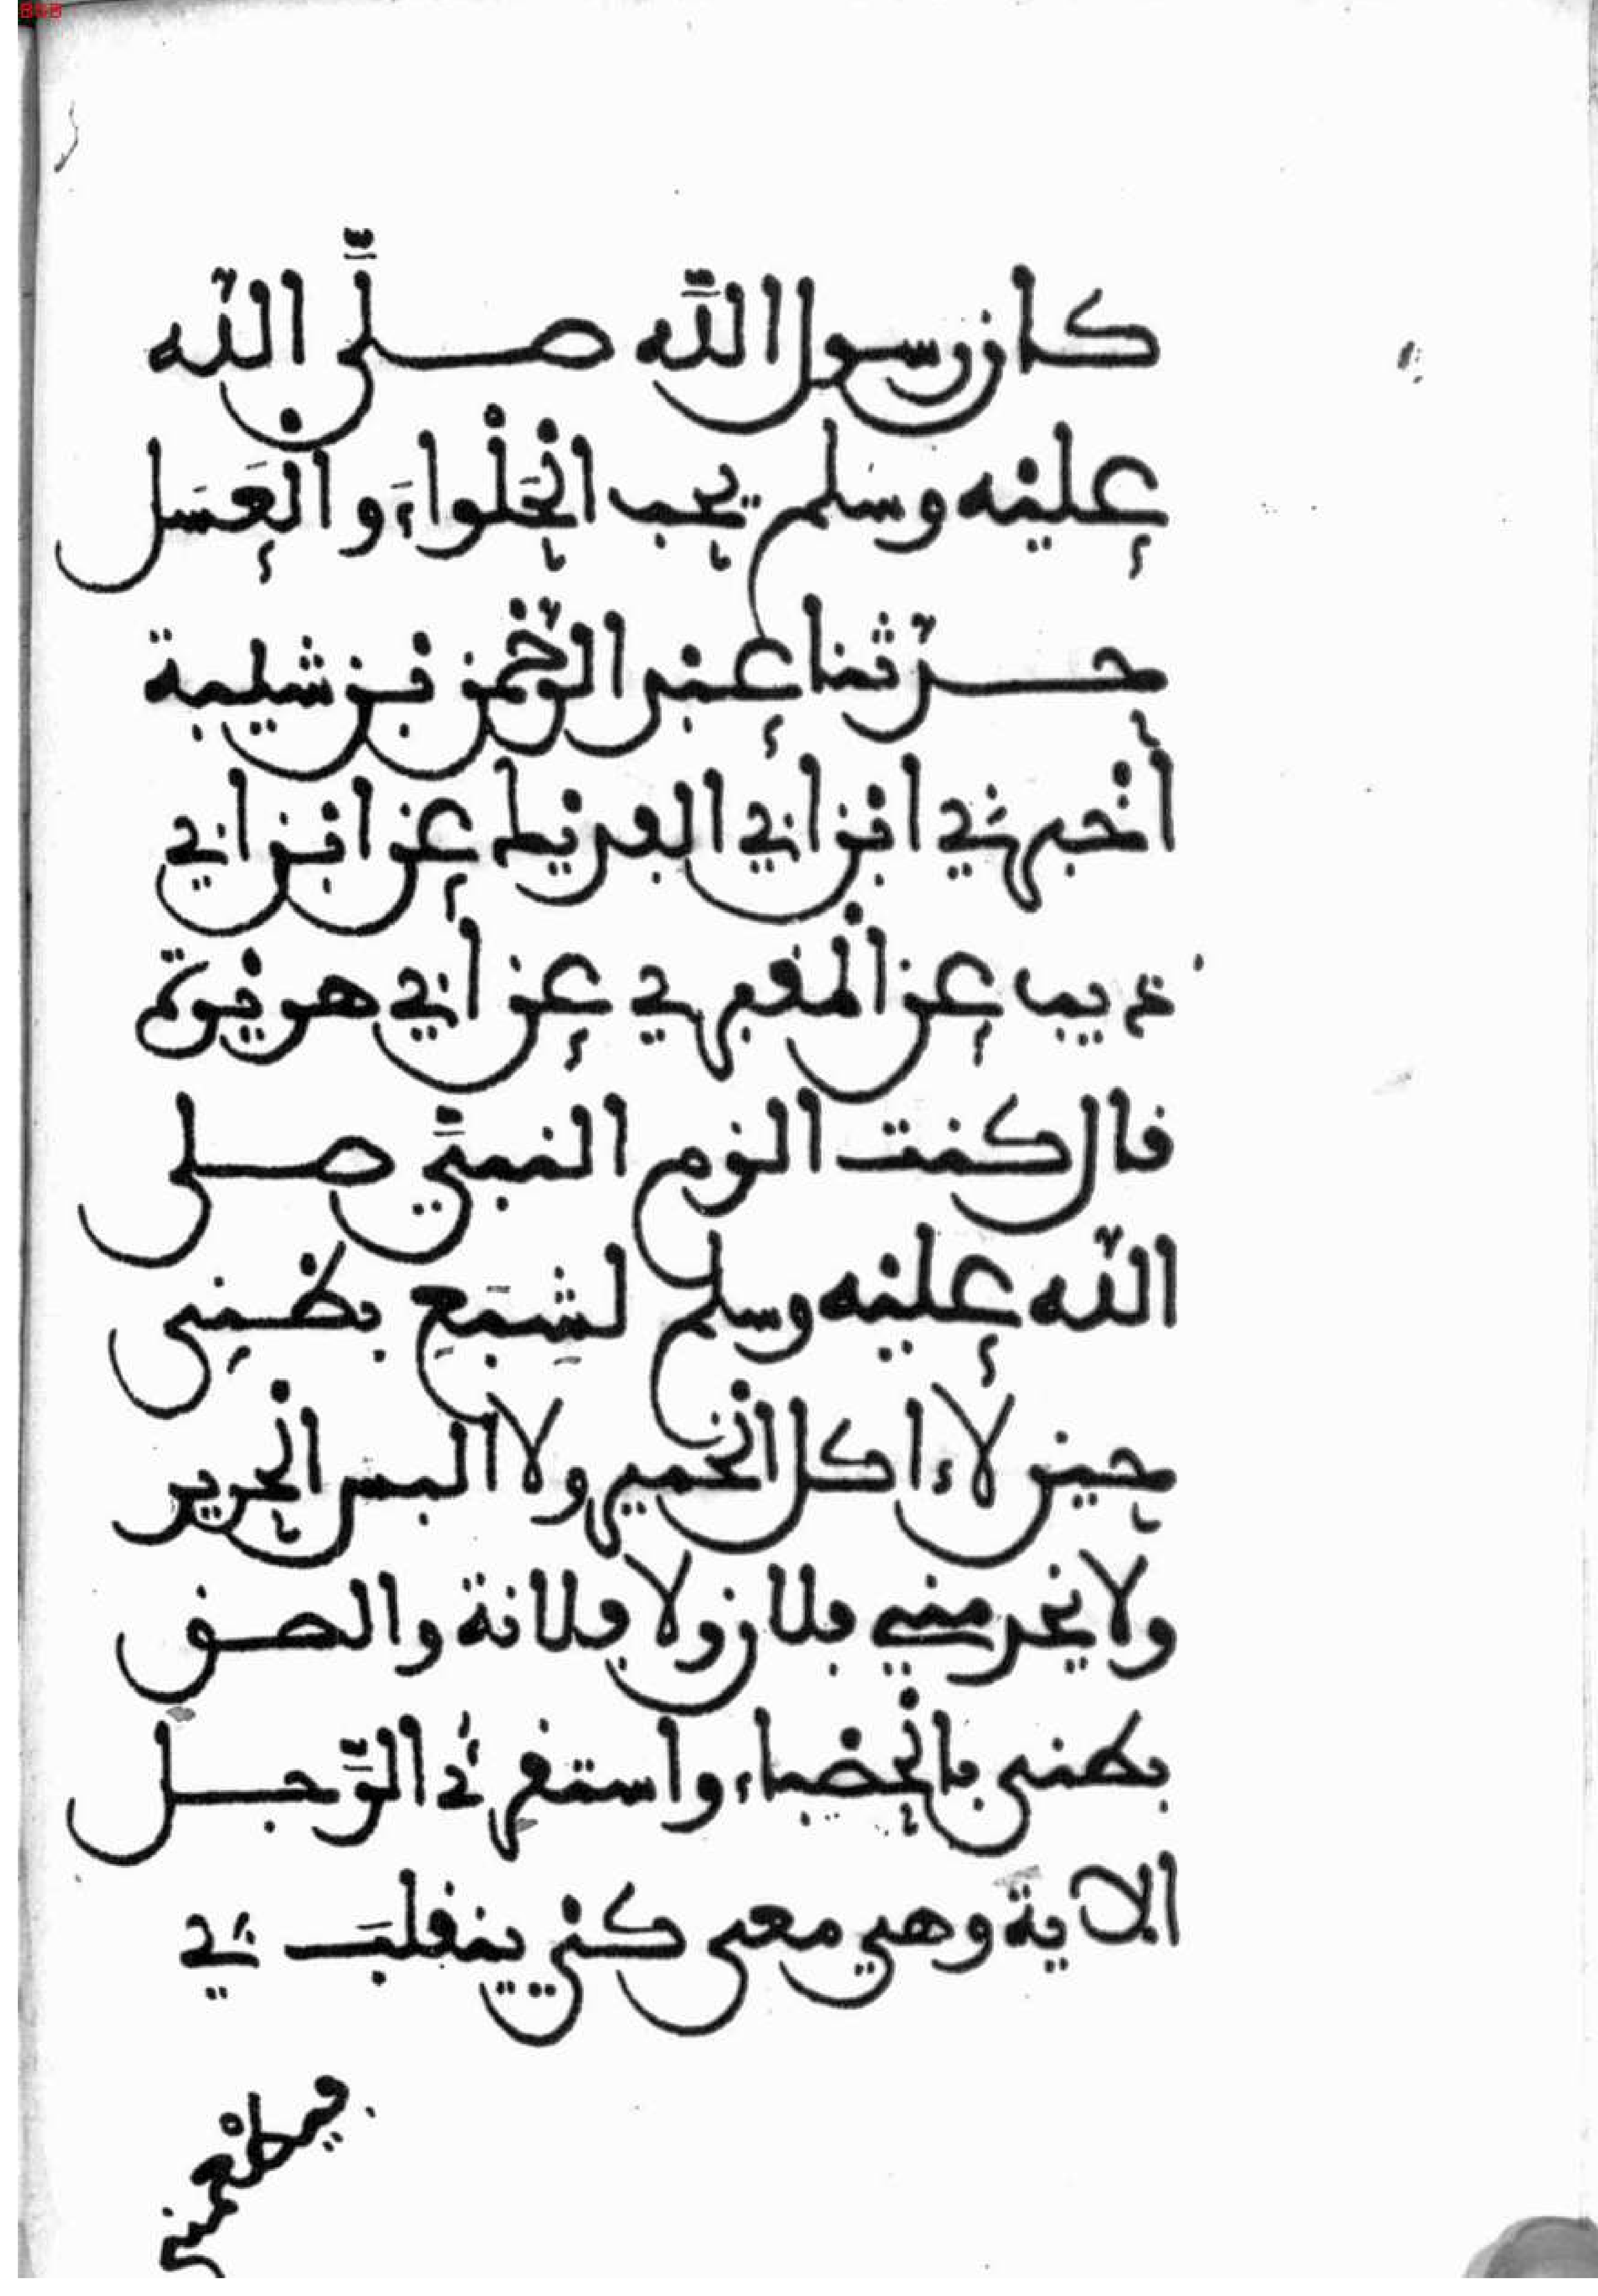 كان رسول الله صلى الله
عليه وسلم يحب الحلواء والعسل
حدثنا عبد الرحمن بن شيبة
أخبرني ابن ابي الفديك عن ابن ابي
ذيب عن المقبري عن أبي هريرة
قال كنت الزم النبي صلى
الله عليه وسلم لشبع بطني
حين لا ءاكل الخمير ولا البس الحرير
ولا يخدمني فلان ولا فلانة والصق
بطني بالحصباء واستقري الرجل
الاية وهي معي كي ينقلب بي
فيطعمني